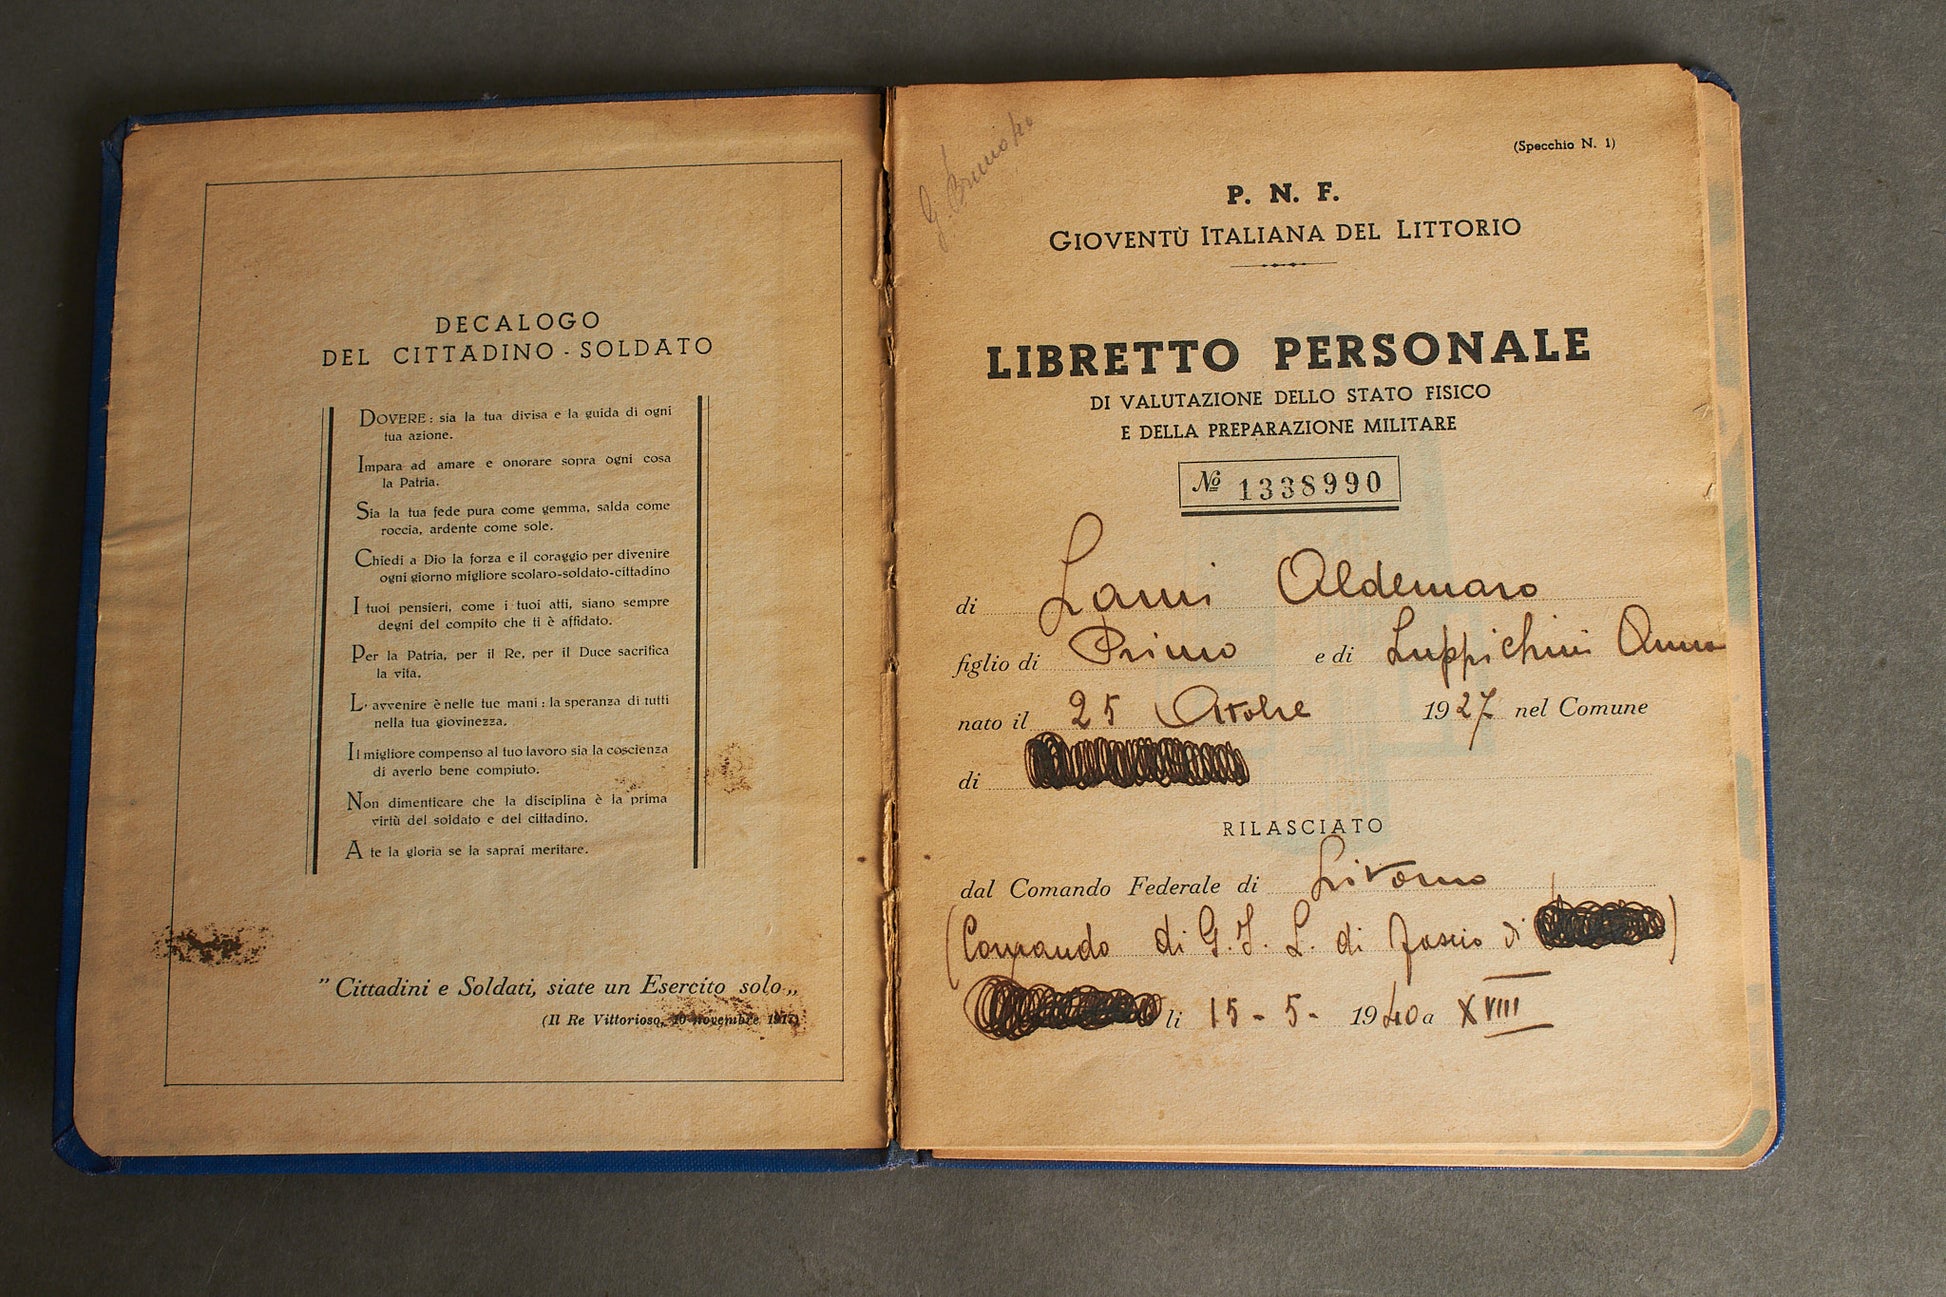 DECALOGO
DEL CITTADINO - SOLDATO
DOVERE: sia la tua divisa e la guida di ogni
tua azione.
Impara ad amare e onorare sopra ogni cosa
la Patria.
Sia la tua fede pura come gemma, salda come
roccia, ardente come sole.
Chiedi a Dio la forza e il coraggio per divenire
ogni giorno migliore scolaro-soldato-cittadino
I tuoi pensieri, come i tuoi atti, siano sempre
degni del compito che ti è affidato.
Per la Patria, per il Re, per il Duce sacrifica
la vita.
L' avvenire è nelle tue mani: la speranza di tutti
nella tua giovinezza.
Il migliore compenso al tuo lavoro sia la coscienza
di averlo bene compiuto.
Non dimenticare che la disciplina è la prima
virtù del soldato e del cittadino.
A te la gloria se la saprai meritare.
"Cittadini e Soldati, siate un Esercito solo„
(Il Re Vittorioso, 10 novembre 1917)
(Specchio N. 1)
P. N. F.
GIOVENTÙ ITALIANA DEL LITTORIO
LIBRETTO PERSONALE
DI VALUTAZIONE DELLO STATO FISICO
E DELLA PREPARAZIONE MILITARE
Nº 1338990
di Lami Aldemaro
figlio di Primo e di Luppichini Anna
nato il 25 Ottobre 1927 nel Comune
di
RILASCIATO
dal Comando Federale di Livorno
(Comando di G. I. L. di Fascio di )
li 15 - 5 - 1940 a XVIII